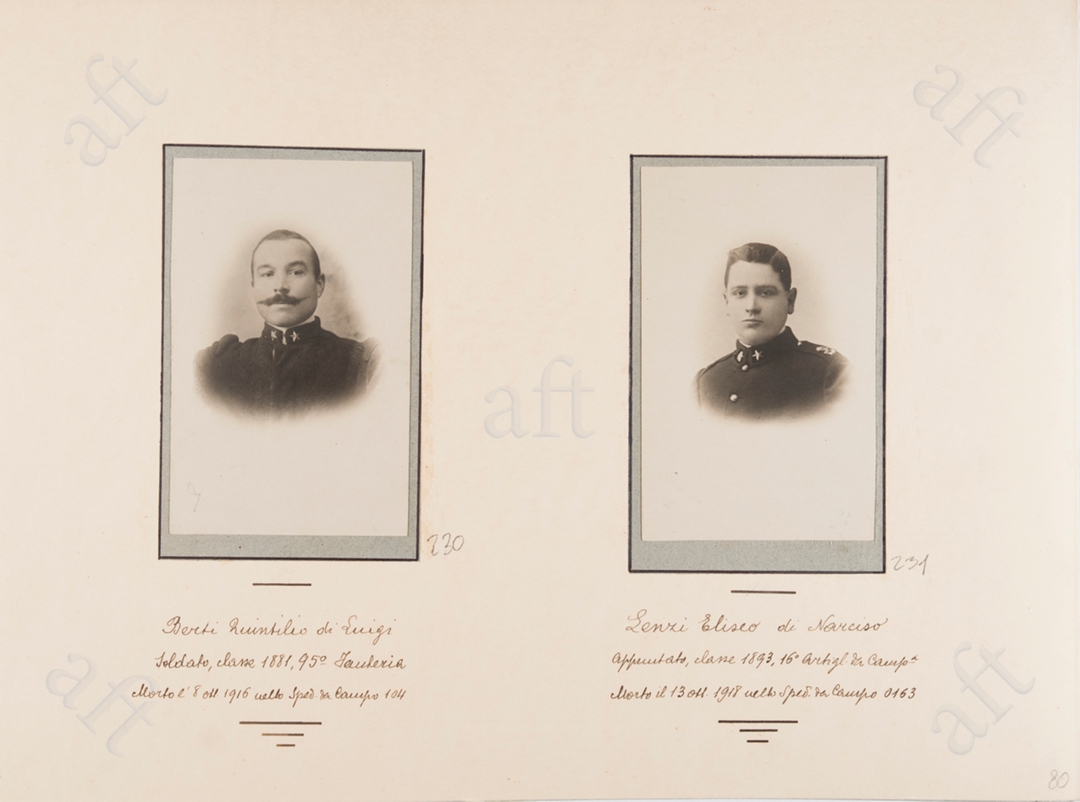 aft
aft
aft
230
231
Berti Quintilio di Luigi
Soldato, classe 1881, 95º Fanteria
Morto l' 8 ott 1916 nello Sped. da Campo 104
Lenzi Eliseo di Narciso
Appuntato, classe 1893, 16º Artigl. da Campª
Morto il 13 ott. 1918 nello Sped. da Campo 0163
aft
aft
80